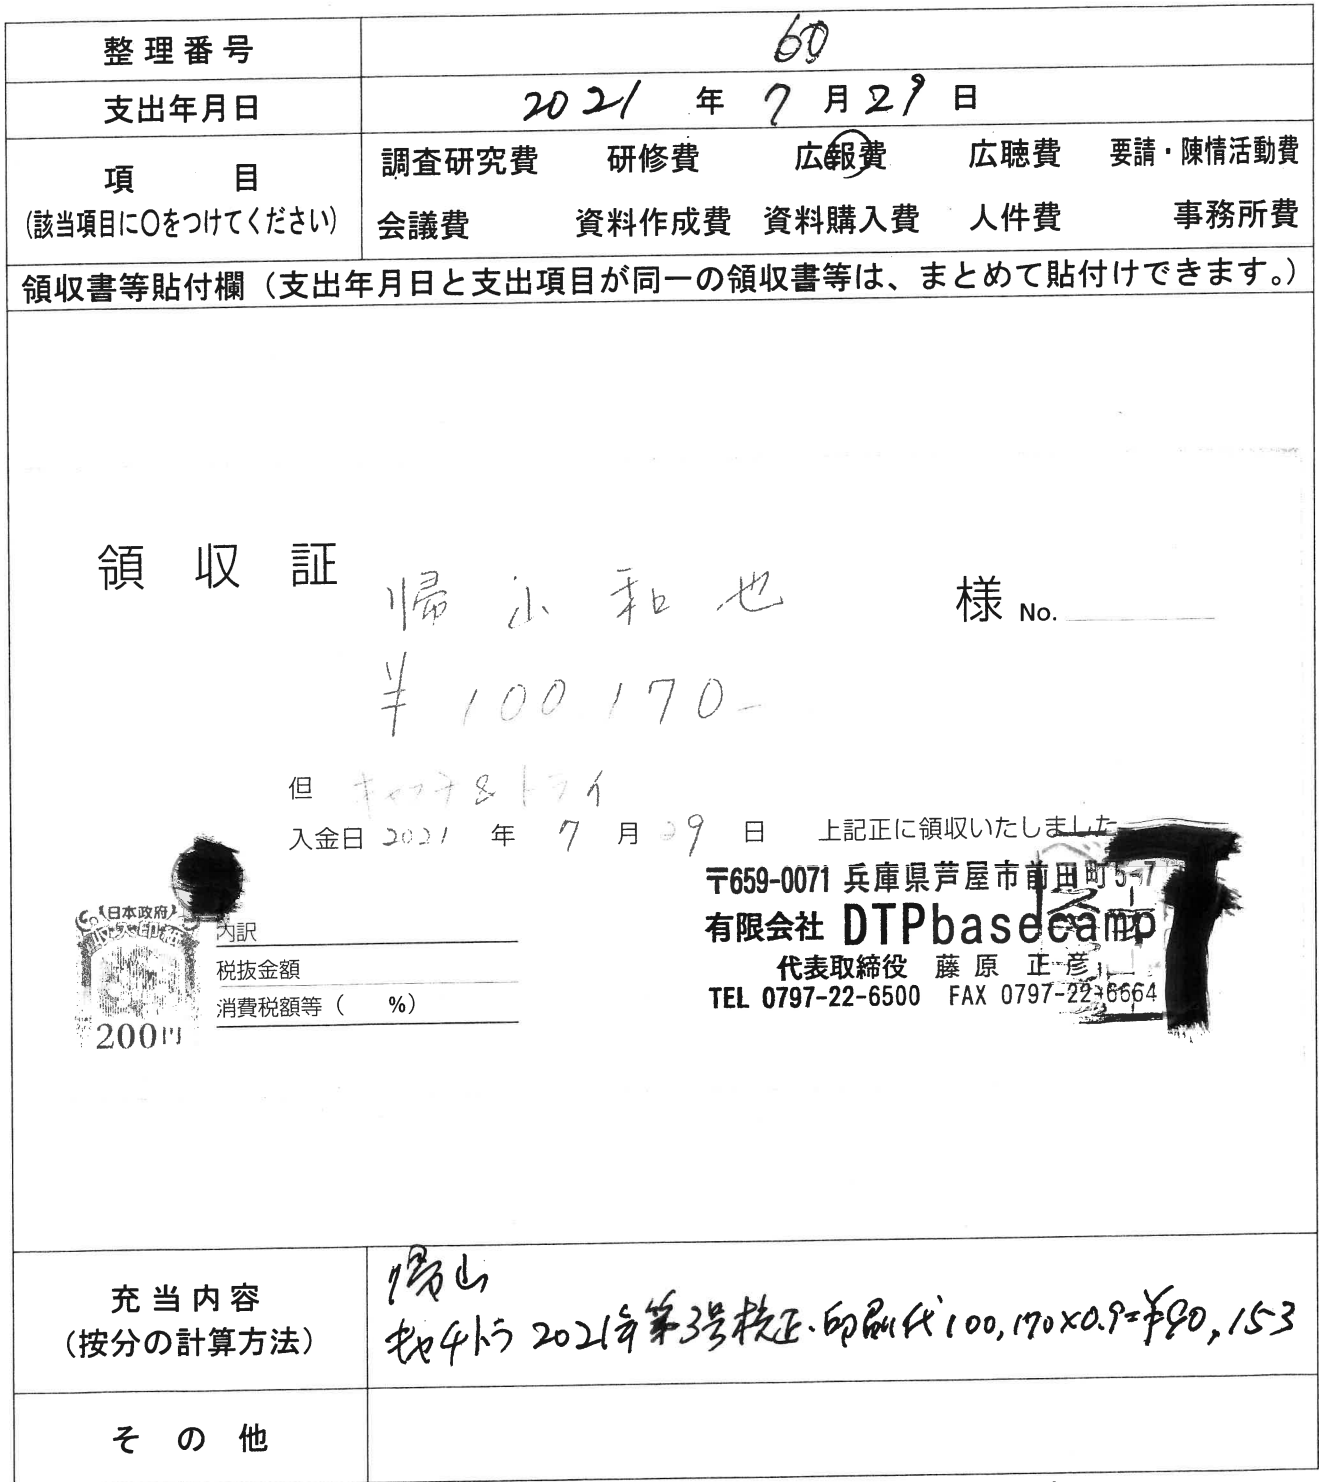 整理番号 60
支出年月日 2021 年 7 月 29 日
項 目
(該当項目に〇をつけてください)
調査研究費 研修費 広報費 広聴費 要請・陳情活動費
会議費 資料作成費 資料購入費 人件費 事務所費
領収書等貼付欄(支出年月日と支出項目が同一の領収書等は、まとめて貼付けできます。)
領収証 帰山和也 様 No.
¥100,170-
但 キャッチ&トライ
入金日 2021 年 7 月 29 日 上記正に領収いたしました
〒659-0071 兵庫県芦屋市前田町5-7
有限会社 DTPbasecamp
代表取締役 藤原 正彦
TEL 0797-22-6500 FAX 0797-22-6664
日本政府
収入印紙
200円
内訳
税抜金額
消費税額等( %)
充当内容
(按分の計算方法)
帰山
キャチトラ 2021年第3号校正・印刷代 100,170×0.9=¥90,153
その他